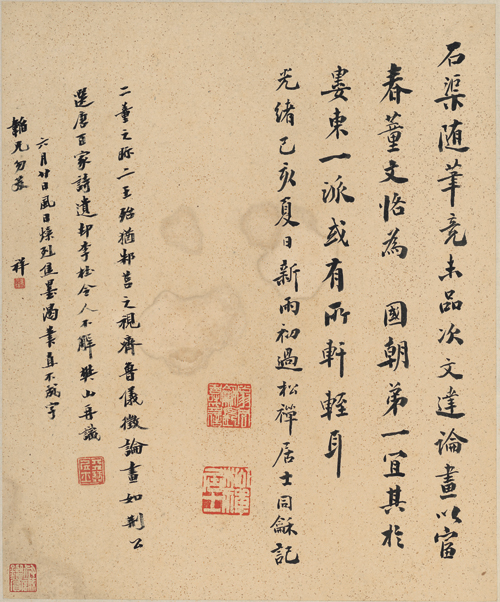 石渠随筆竟未品次文達論畫以富
春董文恪為 國朝弟一宜其於
婁東一派或有所軒輊耳
光緒己亥夏日新雨初過松禪居士同龢記
二董之眎二王殆猶邾莒之視齊魯儀徵論畫如荆公
選唐百家詩遺却李杜令人不解樊山再識
六月廿日風日燥烈隹墨渴書直不成字
韜兄勿罪 祥
松禪居士